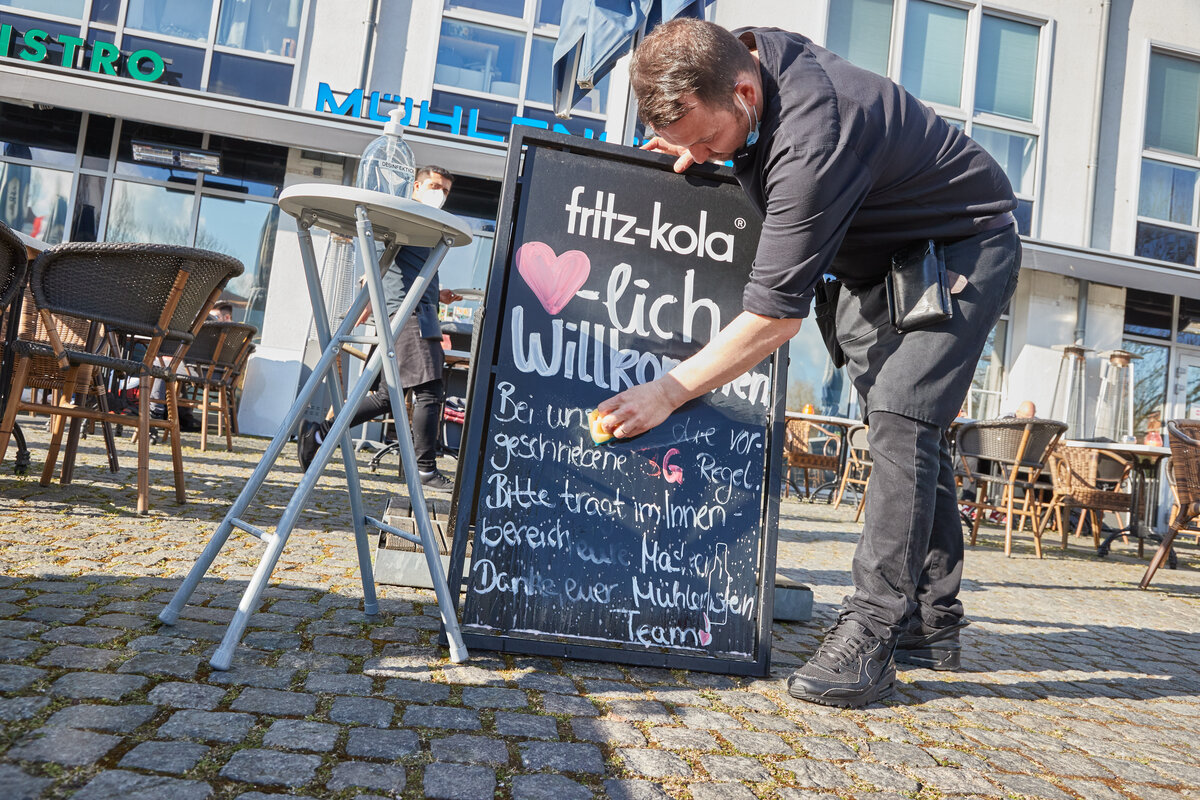 ISTRO
MÜHLEN
DESINFEKTION
fritz-kola®
-lich
Willkommen
Bei uns die vor-
geschriebene 3G Regel.
Bitte tragt im Innen-
bereich eure Masken
Danke euer Mühlenstein
Team